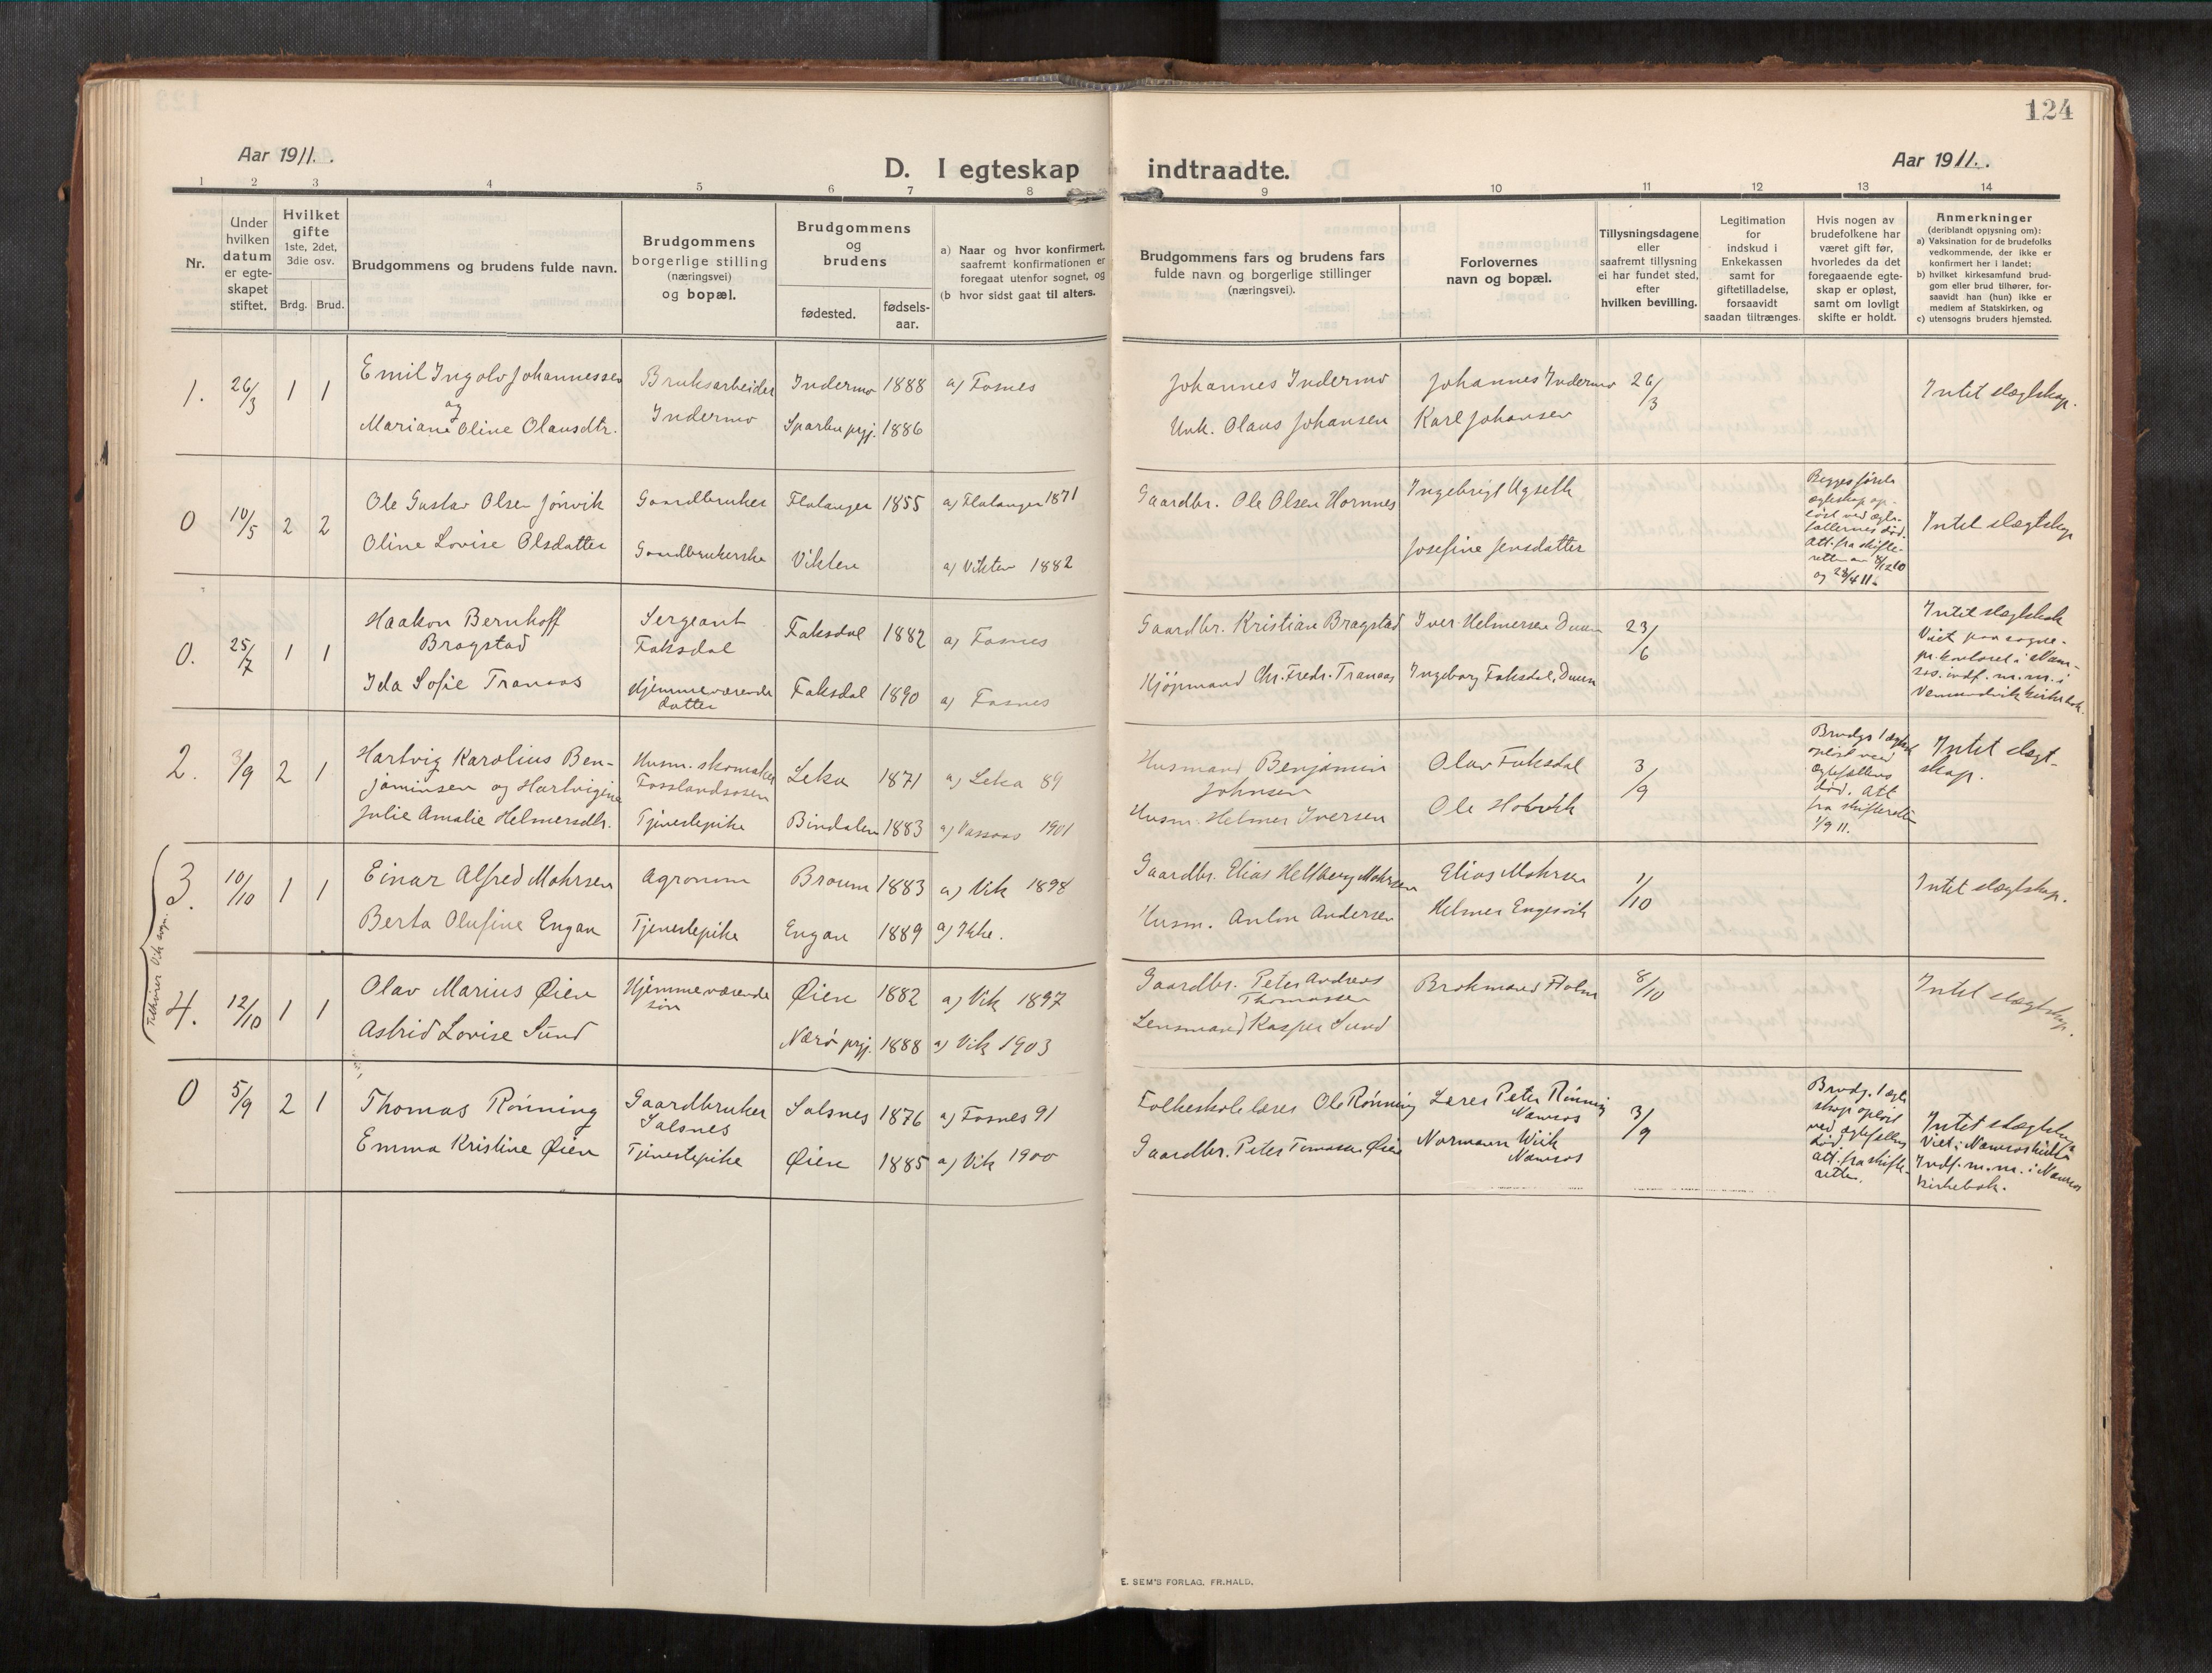 124
Aar 1911.
D. I egteskap indtraadte.
Aar 1911.
1 2 3 4 5 6 7 8 9 10 11 12 13 14
Nr.
Under hvilken datum er egteskapet stiftet.
Hvilket gifte
1ste, 2det, 3die osv.
Brdg. Brud.
Brudgommens og brudens fulde navn.
Brudgommens borgerlige stilling (næringsvei) og bopæl.
Brudgommens og brudens
fødested.
fødsels-aar.
a) Naar og hvor konfirmert, saafremt konfirmationen er foregaat utenfor sognet, og
(b hvor sidst gaat til alters.
Brudgommens fars og brudens fars fulde navn og borgerlige stillinger (næringsvei).
Forlovernes navn og bopæl.
Tillysningsdagene eller saafremt tillysning ei har fundet sted, efter hvilken bevilling.
Legitimation for indskud i Enkekassen samt for giftetilladelse, forsaavidt saadan tiltrænges.
Hvis nogen av brudefolkene har været gift før, hvorledes da det foregaaende egteskap er opløst, samt om lovligt skifte er holdt.
Anmerkninger
(deriblandt opiysning om):
a) Vaksination for de brudefolks vedkommende, der ikke er konfirmert her i landet;
b) hvilket kirkesamfund brudgom eller brud tilhører, forsaavidt han (hun) ikke er medlem af Statskirken, og
c) utensogns bruders hjemsted.
1. 26/3 1 1 Emil Ingolv Johannessen Bruksarbeider Indermo 1888 a) Fosnes Johannes Indermo Johannes Indermo 26/3 Intet slægtskap.
og
Mariane Oline Olausdtr. Indermo Sparbu prgj. 1886 Unk. Olaus Johansen Karl Johansen
0 10/5 2 2 Ole Gustav Olsen Jönvik Gaardbruker Flatanger 1855 a) Flatanger 1871 Gaardbr. Ole Olsen Hornnes Ingebrigt Agseth Intet slægtskap
Oline Lovise Olsdatter Gaardbrukerske Vikten a) Vikten 1882 Josefine Jensdatter
Begges første
egteskap op-
løst ved egte-
fællernes död.
Att. fra skifte-
retten av 8/12 10
og 28/4 11.
0. 25/7 1 1 Haakon Bernhoff Sergeant Faksdal 1882 a) Fosnes Gaardbr. Kristian Bragstad Iver Helmersen Duun 23/6
Bragstad Faksdal
Ida Sofie Tranaas Hjemmeværende datter Faksdal 1890 a) Fosnes Kjöpmand Chr. Fredr. Tranaas Ingeborg Faksdal, Duun
Intet slægtskap
Viet paa sogne-
pr. kontoret i Nam-
sos. indf. m.m. i
Vemundvik kirkebok.
2. 3/9 2 1 Hartvig Karolius Ben- Husm. skomaker Leka 1871 a) Leka 89 Husmand Benjamin Olav Faksdal 3/9
jaminsen og Hartvigine Fosslandsosen Johnsen
Julie Amalie Helmersdtr. Tjenestepike Bindalen 1883 a) Vassaas 1901 Husm. Helmer Iversen Ole
Brudgs 1 egtesk
opløst ved
egtefællens
död. Att
fra skifteretten
1/9 11.
Intet slægt-
skap.
Tilhører Vik sogn.
3. 10/10 1 1 Einar Alfred Mohrsen Agronom 1883 a) Vik 1898 Gaardbr. Elias Mohrsen Elias Mohrsen 1/10 Intet slægtskap.
Berta Olufine Engan Tjenestepike Engan 1889 a) Ikke. Husm. Anton Andersen Helmer Engesvik
4. 12/10 1 1 Olav Marius Øien Hjemmeværende sön Øien 1882 a) Vik 1897 Gaardbr. Peter Andreas Thomassen Holm 8/10 Intet slægtskap.
Astrid Lovise Sund Nærö prgj. 1888 a) Vik 1903 Lensmand Kasper Sund
0 5/9 2 1 Thomas Rönning Gaardbruker Salsnes 1876 a) Fosnes 91 Folkeskolelærer Ole Rönning Lærer Peter Rönning Namsos 3/9
Salsnes
Emma Kristine Øien Tjenestepike Øien 1885 a) Vik 1900 Gaardbr. Peter Tomassen Øien Normann Wiik Namsos
Brudg. 1 egte
skap opløst
ved egtefælles
död.
att. fra skifte-
retten.
Intet slægtskap
Viet i Namsos kirke
Indf. m.m. i Namsos
kirkebok.
E. SEM'S FORLAG, FR.HALD.